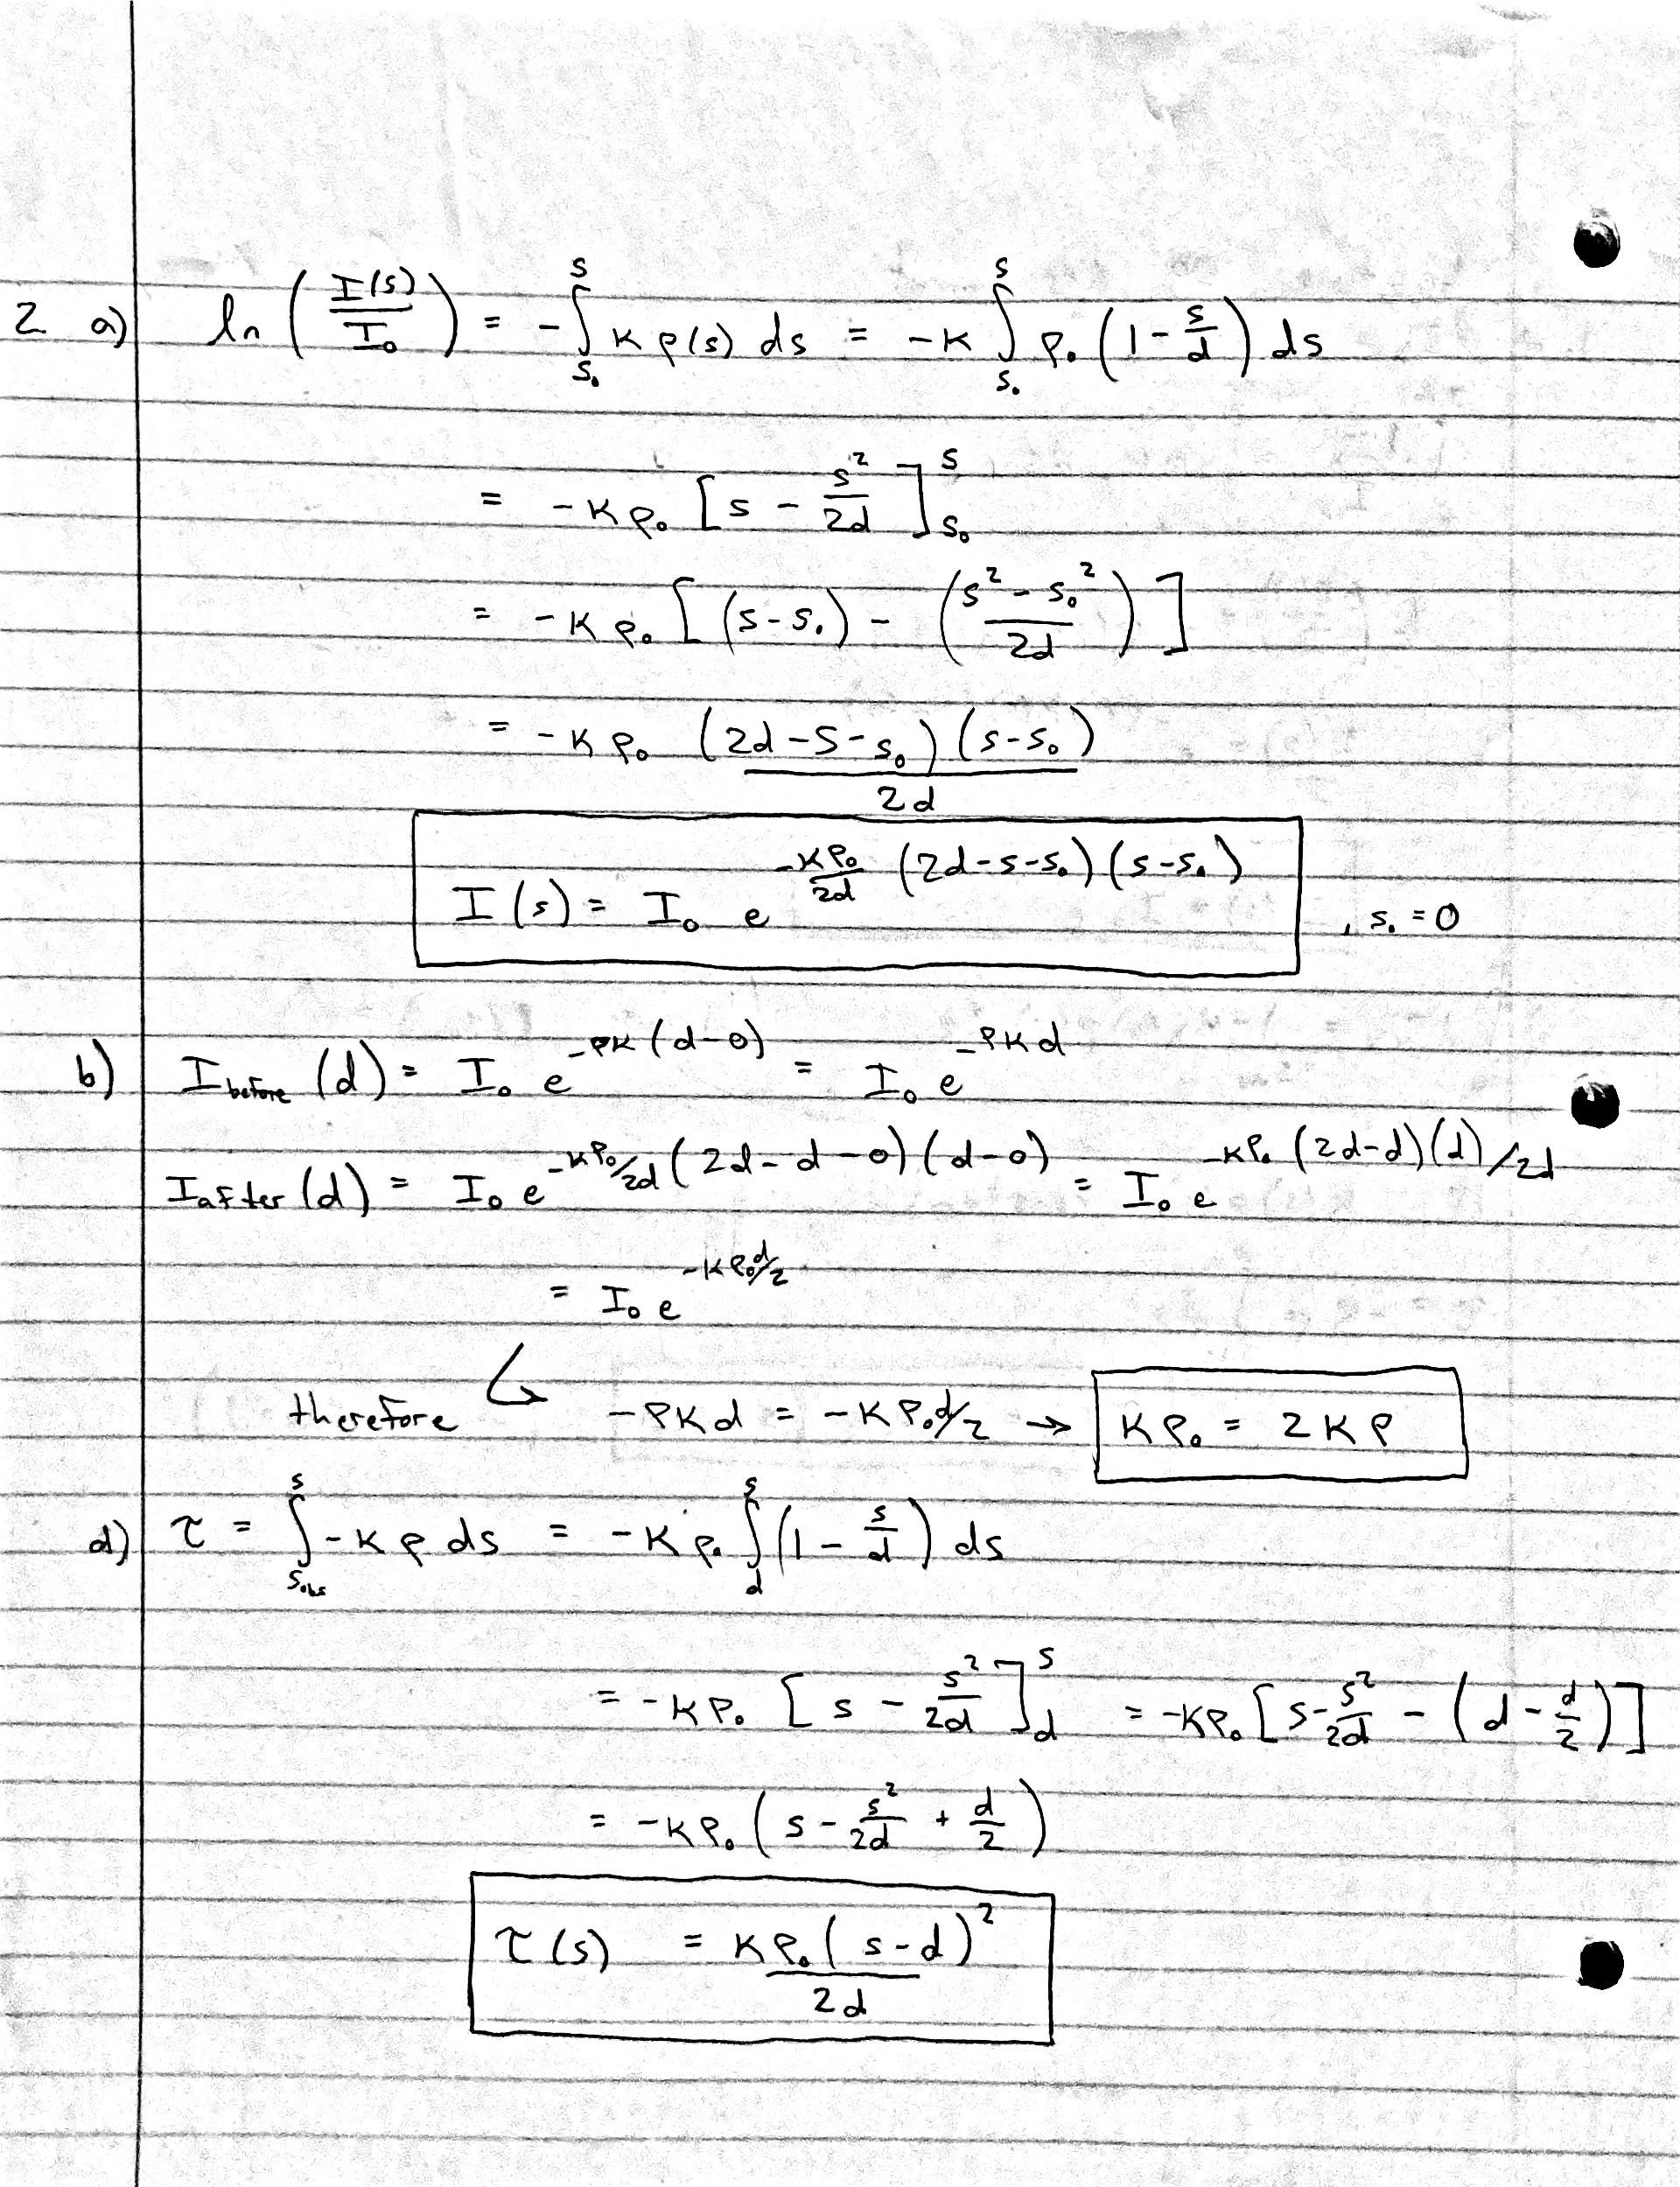 2 a) ln ( I(s) / I₀ ) = - ∫_{s₀}^{s} κ ρ(s) ds = -κ ∫_{s₀}^{s} ρ₀ ( 1 - s/d ) ds
= -κ ρ₀ [ s - s²/2d ]_{s₀}^{s}
= -κ ρ₀ [ (s-s₀) - ( (s² - s₀²) / 2d ) ]
= -κ ρ₀ (2d-s-s₀) (s-s₀) / 2d
I(s) = I₀ e^{-κρ₀/2d (2d-s-s₀)(s-s₀)} , s₀ = 0
b) I before (d) = I₀ e^{-ρκ(d-0)} = I₀ e^{-ρκd}
I after (d) = I₀ e^{-κρ₀/2d (2d-d-0)(d-0)} = I₀ e^{-κρ₀ (2d-d)(d)/2d}
= I₀ e^{-κρ₀d/2}
therefore ↳ -ρκd = -κρ₀d/2 → κρ₀ = 2κρ
d) τ = ∫_{s_obs}^{s} -κ ρ ds = -κρ₀ ∫_{d}^{s} (1 - s/d) ds
= -κρ₀ [ s - s²/2d ]_{d}^{s} = -κρ₀ [ s - s²/2d - ( d - d/2 ) ]
= -κρ₀ ( s - s²/2d + d/2 )
τ(s) = κρ₀ (s-d)² / 2d